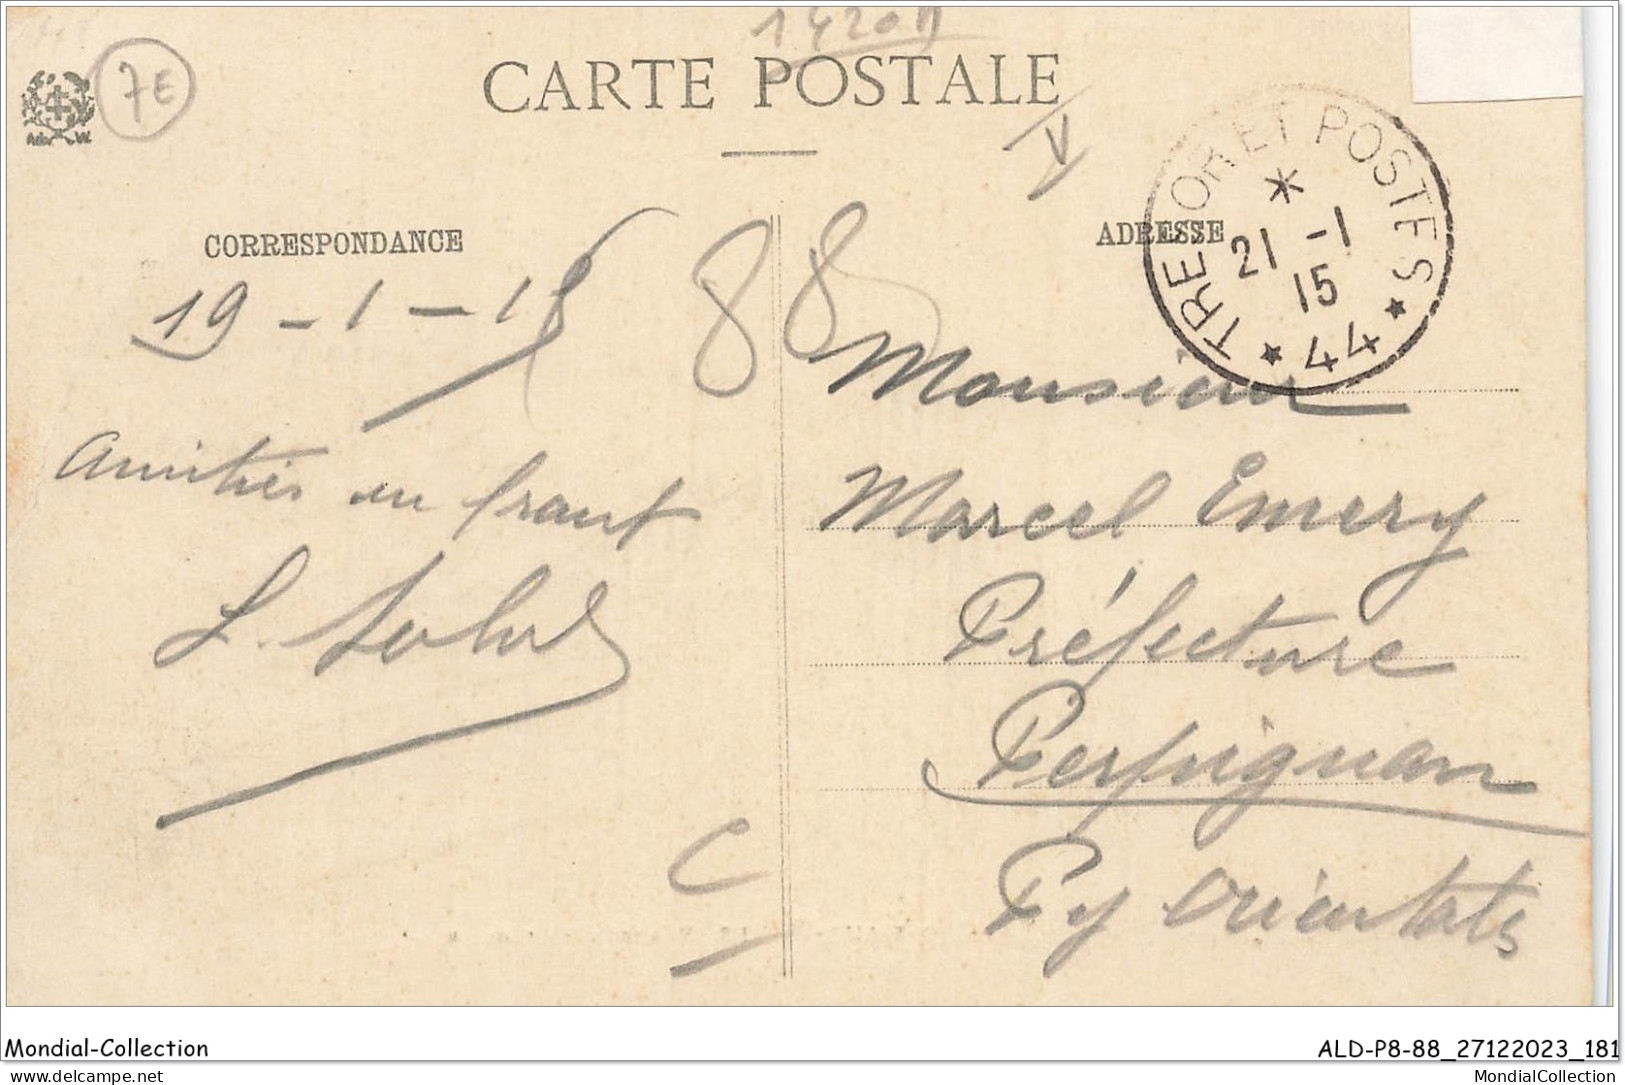 1420A
7E
CARTE POSTALE
V
Ad. W.
TRESOR ET POSTES
21 -1
15
* 44 *
CORRESPONDANCE
ADRESSE
19 - 1 - 15
88
Monsieur
amitiés du front
Marcel Emery
L.
Préfecture
Perpignan
C
Py Orientales
Mondial-Collection
ALD-P8-88_27122023_181
delcampe.net
MondialCollection